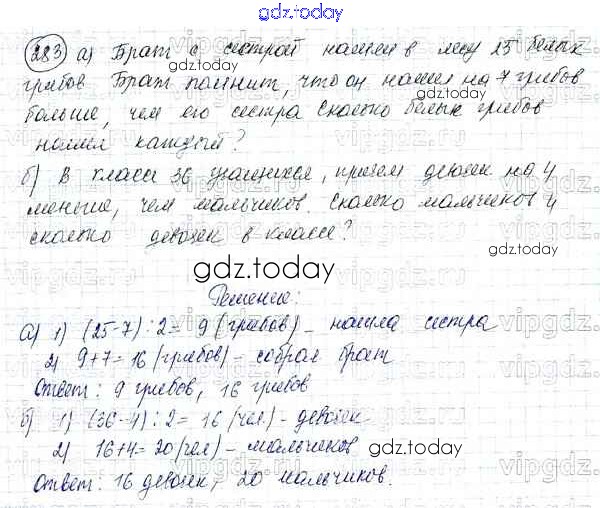 gdz.today
283 а) Брат с сестрой нашли в лесу 25 белых
грибов Брат помнит, что он нашел на 7 грибов
больше, чем его сестра Сколько белых грибов
нашел каждый?
б) В классе 36 учащихся, причем девочек на 4
меньше, чем мальчиков. Сколько мальчиков и
сколько девочек в классе?
gdz.today
Решение:
а) 1) (25-7):2= 9 (грибов) – нашла сестра
2) 9+7=16 (грибов) – собрал брат
Ответ: 9 грибов, 16 грибов
б) 1) (36-4):2=16 (чел) - девочек
2) 16+4=20 (чел) – мальчиков
gdz.today
Ответ: 16 девочек, 20 мальчиков.